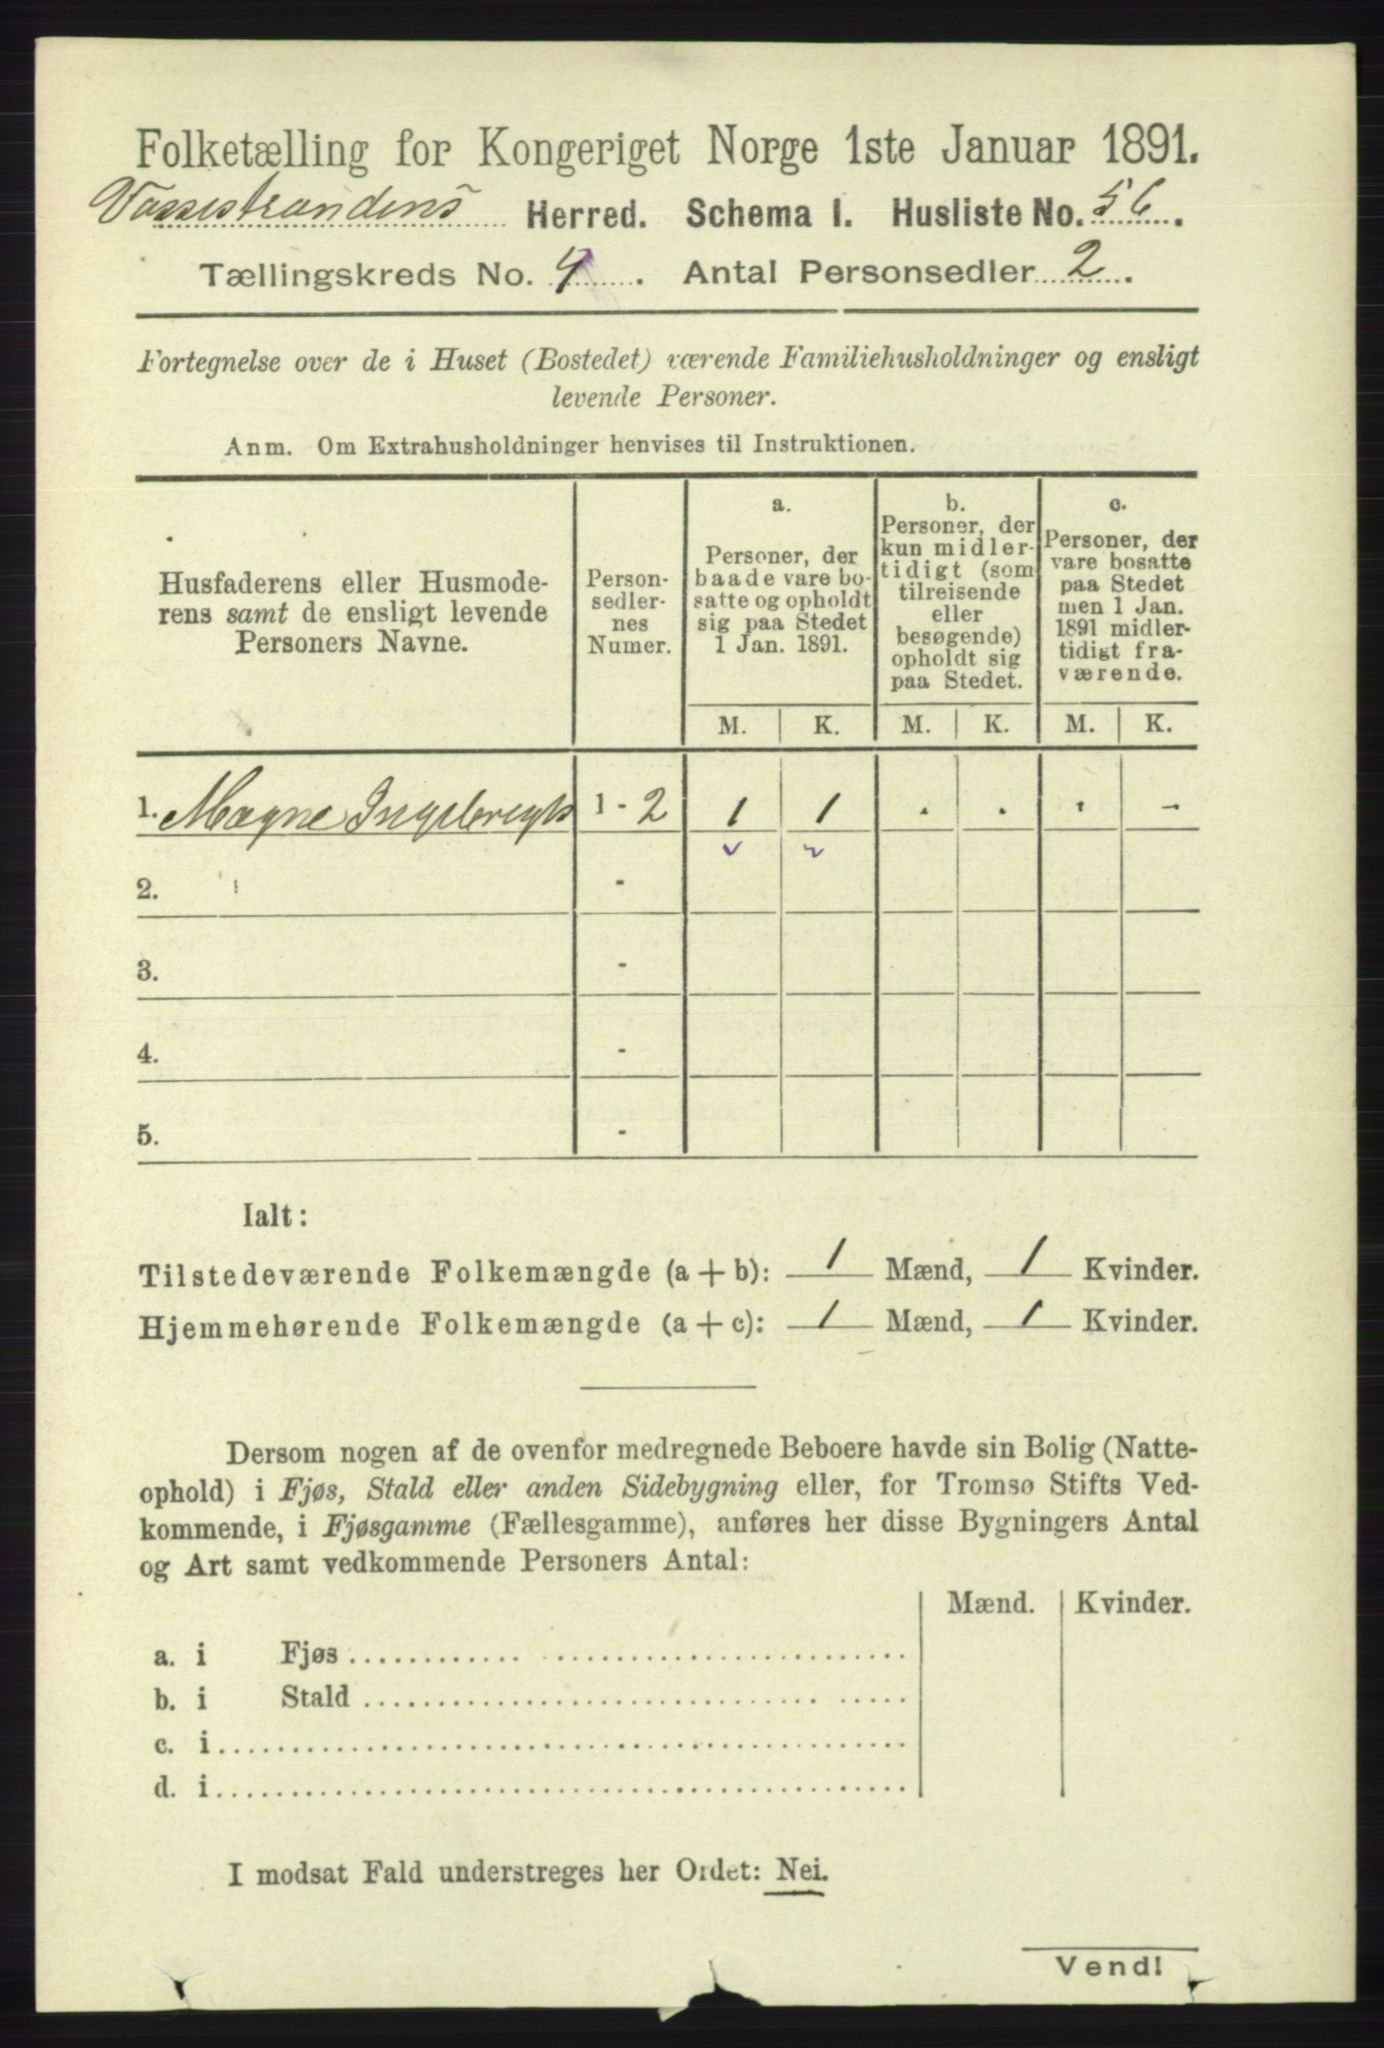 Folketælling for Kongeriget Norge 1ste Januar 1891.
Vossestrandens Herred. Schema I. Husliste No. 56.
Tællingskreds No. 4. Antal Personsedler 2.
Fortegnelse over de i Huset (Bostedet) værende Familiehusholdninger og ensligt
levende Personer.
Anm. Om Extrahusholdninger henvises til Instruktionen.
Husfaderens eller Husmode-
rens samt de ensligt levende
Personers Navne.
Person-
sedler-
nes
Numer.
a.
Personer, der
baade vare bo-
satte og opholdt
sig paa Stedet
1 Jan. 1891.
b.
Personer, der
kun midler-
tidigt (som
tilreisende
eller
besøgende)
opholdt sig
paa Stedet.
c.
Personer, der
vare bosatte
paa Stedet
men 1 Jan.
1891 midler-
tidigt fra-
værende.
M. K. M. K. M. K.
1. Magne Ingebregts 1 - 2 1 1 . . . -
2. -
3. -
4. -
5. -
Ialt:
Tilstedeværende Folkemængde (a + b): 1 Mænd, 1 Kvinder.
Hjemmehørende Folkemængde (a + c): 1 Mænd, 1 Kvinder.
Dersom nogen af de ovenfor medregnede Beboere havde sin Bolig (Natte-
ophold) i Fjøs, Stald eller anden Sidebygning eller, for Tromsø Stifts Ved-
kommende, i Fjøsgamme (Fællesgamme), anføres her disse Bygningers Antal
og Art samt vedkommende Personers Antal:
Mænd. Kvinder.
a. i Fjøs
b. i Stald
c. i
d. i
I modsat Fald understreges her Ordet: Nei.
Vend!